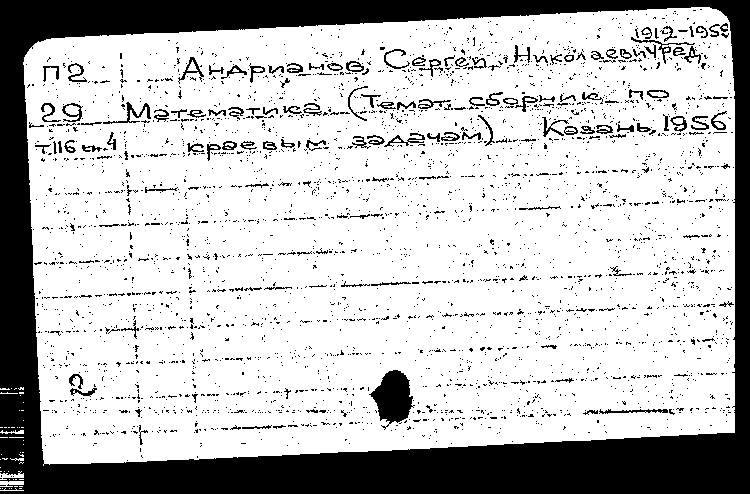 1919-1959
П2 Андрианов, Сергей Николаевич, ред.
29 Математика. (Темат. сборник по
т.116 кн.4 краевым задачам) Казань, 1956
2